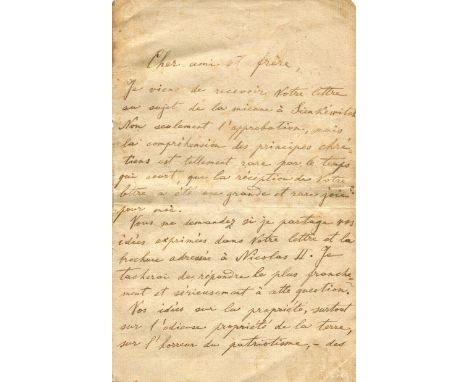 Cher ami et frère,
Je viens de recevoir Votre lettre
au sujet de la mienne à Sienkéwitch.
Non seulement l'approbation, mais
la compréhension des principes chré-
tiens est tellement rare par le temps
qui court, que la réception de Votre
lettre a été une grande et rare joie
pour moi.
Vous me demandez si je partage vos
idées exprimées dans Votre lettre et la
brochure adressée à Nicolas II. Je
tacherai de répondre le plus franche-
ment et sérieusement à cette question.
Vos idées sur la propriété, surtout
sur l'odieuse propriété de la terre,
sur l'horreur du patriotisme, – des